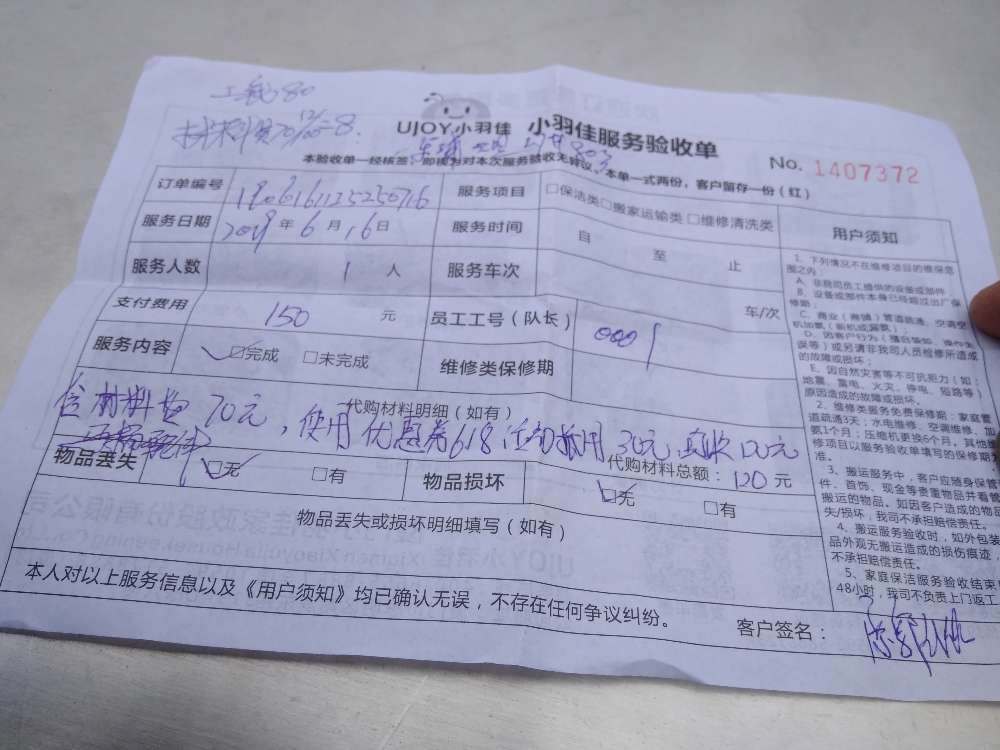 工税80
材料费70
UJOY小羽佳 小羽佳服务验收单
No. 1407372
本验收单一经核签,即视为对本次服务验收无异议,本单一式两份,客户留存一份(红)
订单编号 服务项目 □保洁类□搬家运输类□维修清洗类
服务日期 2019年6月16日 服务时间 自 至 止
服务人数 1人 服务车次 车/次
支付费用 150元 员工工号(队长) 0001
服务内容 ☑完成 □未完成 维修类保修期
代购材料明细(如有)
含材料费70元,使用优惠卷618活动抵用30元,实收120元
代购材料总额:120元
物品丢失 ☑无 □有 物品损坏 ☑无 □有
物品丢失或损坏明细填写(如有)
本人对以上服务信息以及《用户须知》均已确认无误,不存在任何争议纠纷。
客户签名:
用户须知
1、下列情况不在维修项目的维保范
围之内:
A、非我司员工提供的设备或部件
B、设备或部件本身已经超过出厂保
修期;
C、商业(商铺)管道疏通、空调空
机加氟(新机或漏氟);
D、因客户行为(擅自装卸、操作失
误等)或另请非我司人员检修所造成
的故障或损坏;
E、因自然灾害等不可抗拒力(如:
地震、雷电、火灾、停电、短路等)
原因造成的故障或损坏。
2、维修类服务免费保修期:家庭管
道疏通3天;水电维修、空调维修、加
氨1个月;压缩机更换6个月,其他维
修项目以服务验收单填写的保修期为
准。
3、搬运服务中,客户应随身保管
件、首饰、现金等贵重物品并看管
搬运的物品。如因客户造成的物品
失/损坏,我司不承担赔偿责任。
4、搬运服务验收时,如外包装
品外观无搬运造成的损伤痕迹,
不承担赔偿责任。
5、家庭保洁服务验收结束
48小时,我司不负责上门返工